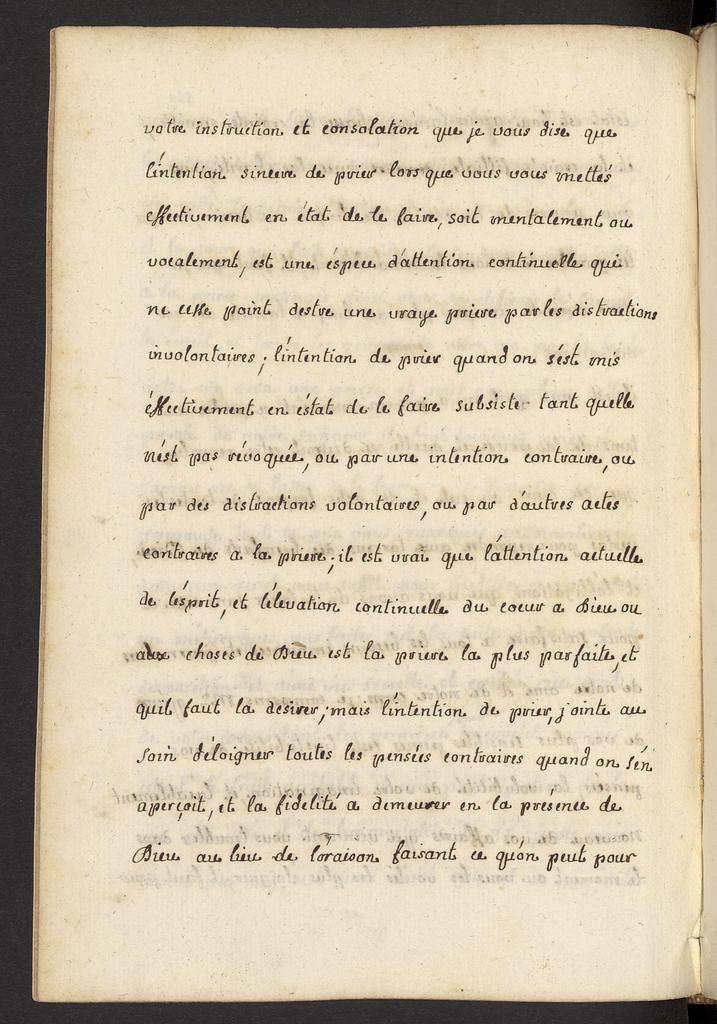 votre instruction et consolation que je vous dise que
l'intention sincere de prier lors que vous vous mettés
effectivement en état de le faire, soit mentalement ou
vocalement, est une éspece d'attention continuelle qui
ne cesse point destre une vraye priere par les distractions
involontaires; l'intention de prier quand on s'est mis
éffectivement en éstat de le faire subsiste tant quelle
n'est pas révoquée, ou par une intention contraire, ou
par des distractions volontaires, ou par d'autres actes
contraires a la priere; il est vrai que l'attention actuelle
de l'esprit, et l'elevation continuelle du coeur a Dieu ou
aux choses de Dieu est la priere la plus parfaite, et
quil faut la desirer; mais l'intention de prier, jointe au
soin d'éloigner toutes les pensées contraires quand on s'én
aperçoit, et la fidelité a demeurer en la présence de
Dieu au lieu de l'oraison faisant ce qu'on peut pour